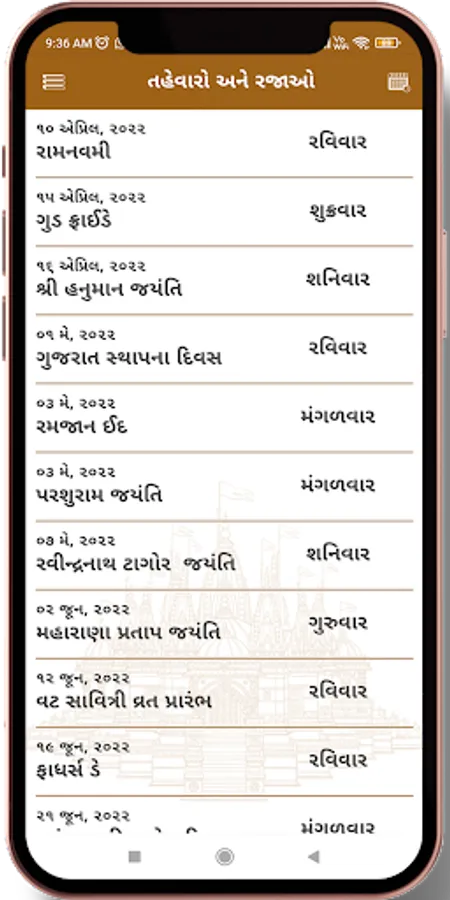 9:36 AM
તહેવારો અને રજાઓ
૧૦ એપ્રિલ, ૨૦૨૨
રામનવમી
રવિવાર
૧૫ એપ્રિલ, ૨૦૨૨
ગુડ ફ્રાઈડે
શુક્રવાર
૧૬ એપ્રિલ, ૨૦૨૨
શ્રી હનુમાન જયંતિ
શનિવાર
૦૧ મે, ૨૦૨૨
ગુજરાત સ્થાપના દિવસ
રવિવાર
૦૩ મે, ૨૦૨૨
રમજાન ઈદ
મંગળવાર
૦૩ મે, ૨૦૨૨
પરશુરામ જયંતિ
મંગળવાર
૦૭ મે, ૨૦૨૨
રવીન્દ્રનાથ ટાગોર જયંતિ
શનિવાર
૦૨ જૂન, ૨૦૨૨
મહારાણા પ્રતાપ જયંતિ
ગુરુવાર
૧૨ જૂન, ૨૦૨૨
વટ સાવિત્રી વ્રત પ્રારંભ
રવિવાર
૧૯ જૂન, ૨૦૨૨
ફાધર્સ ડે
રવિવાર
૨૧ જૂન, ૨૦૨૨
મંગળવાર